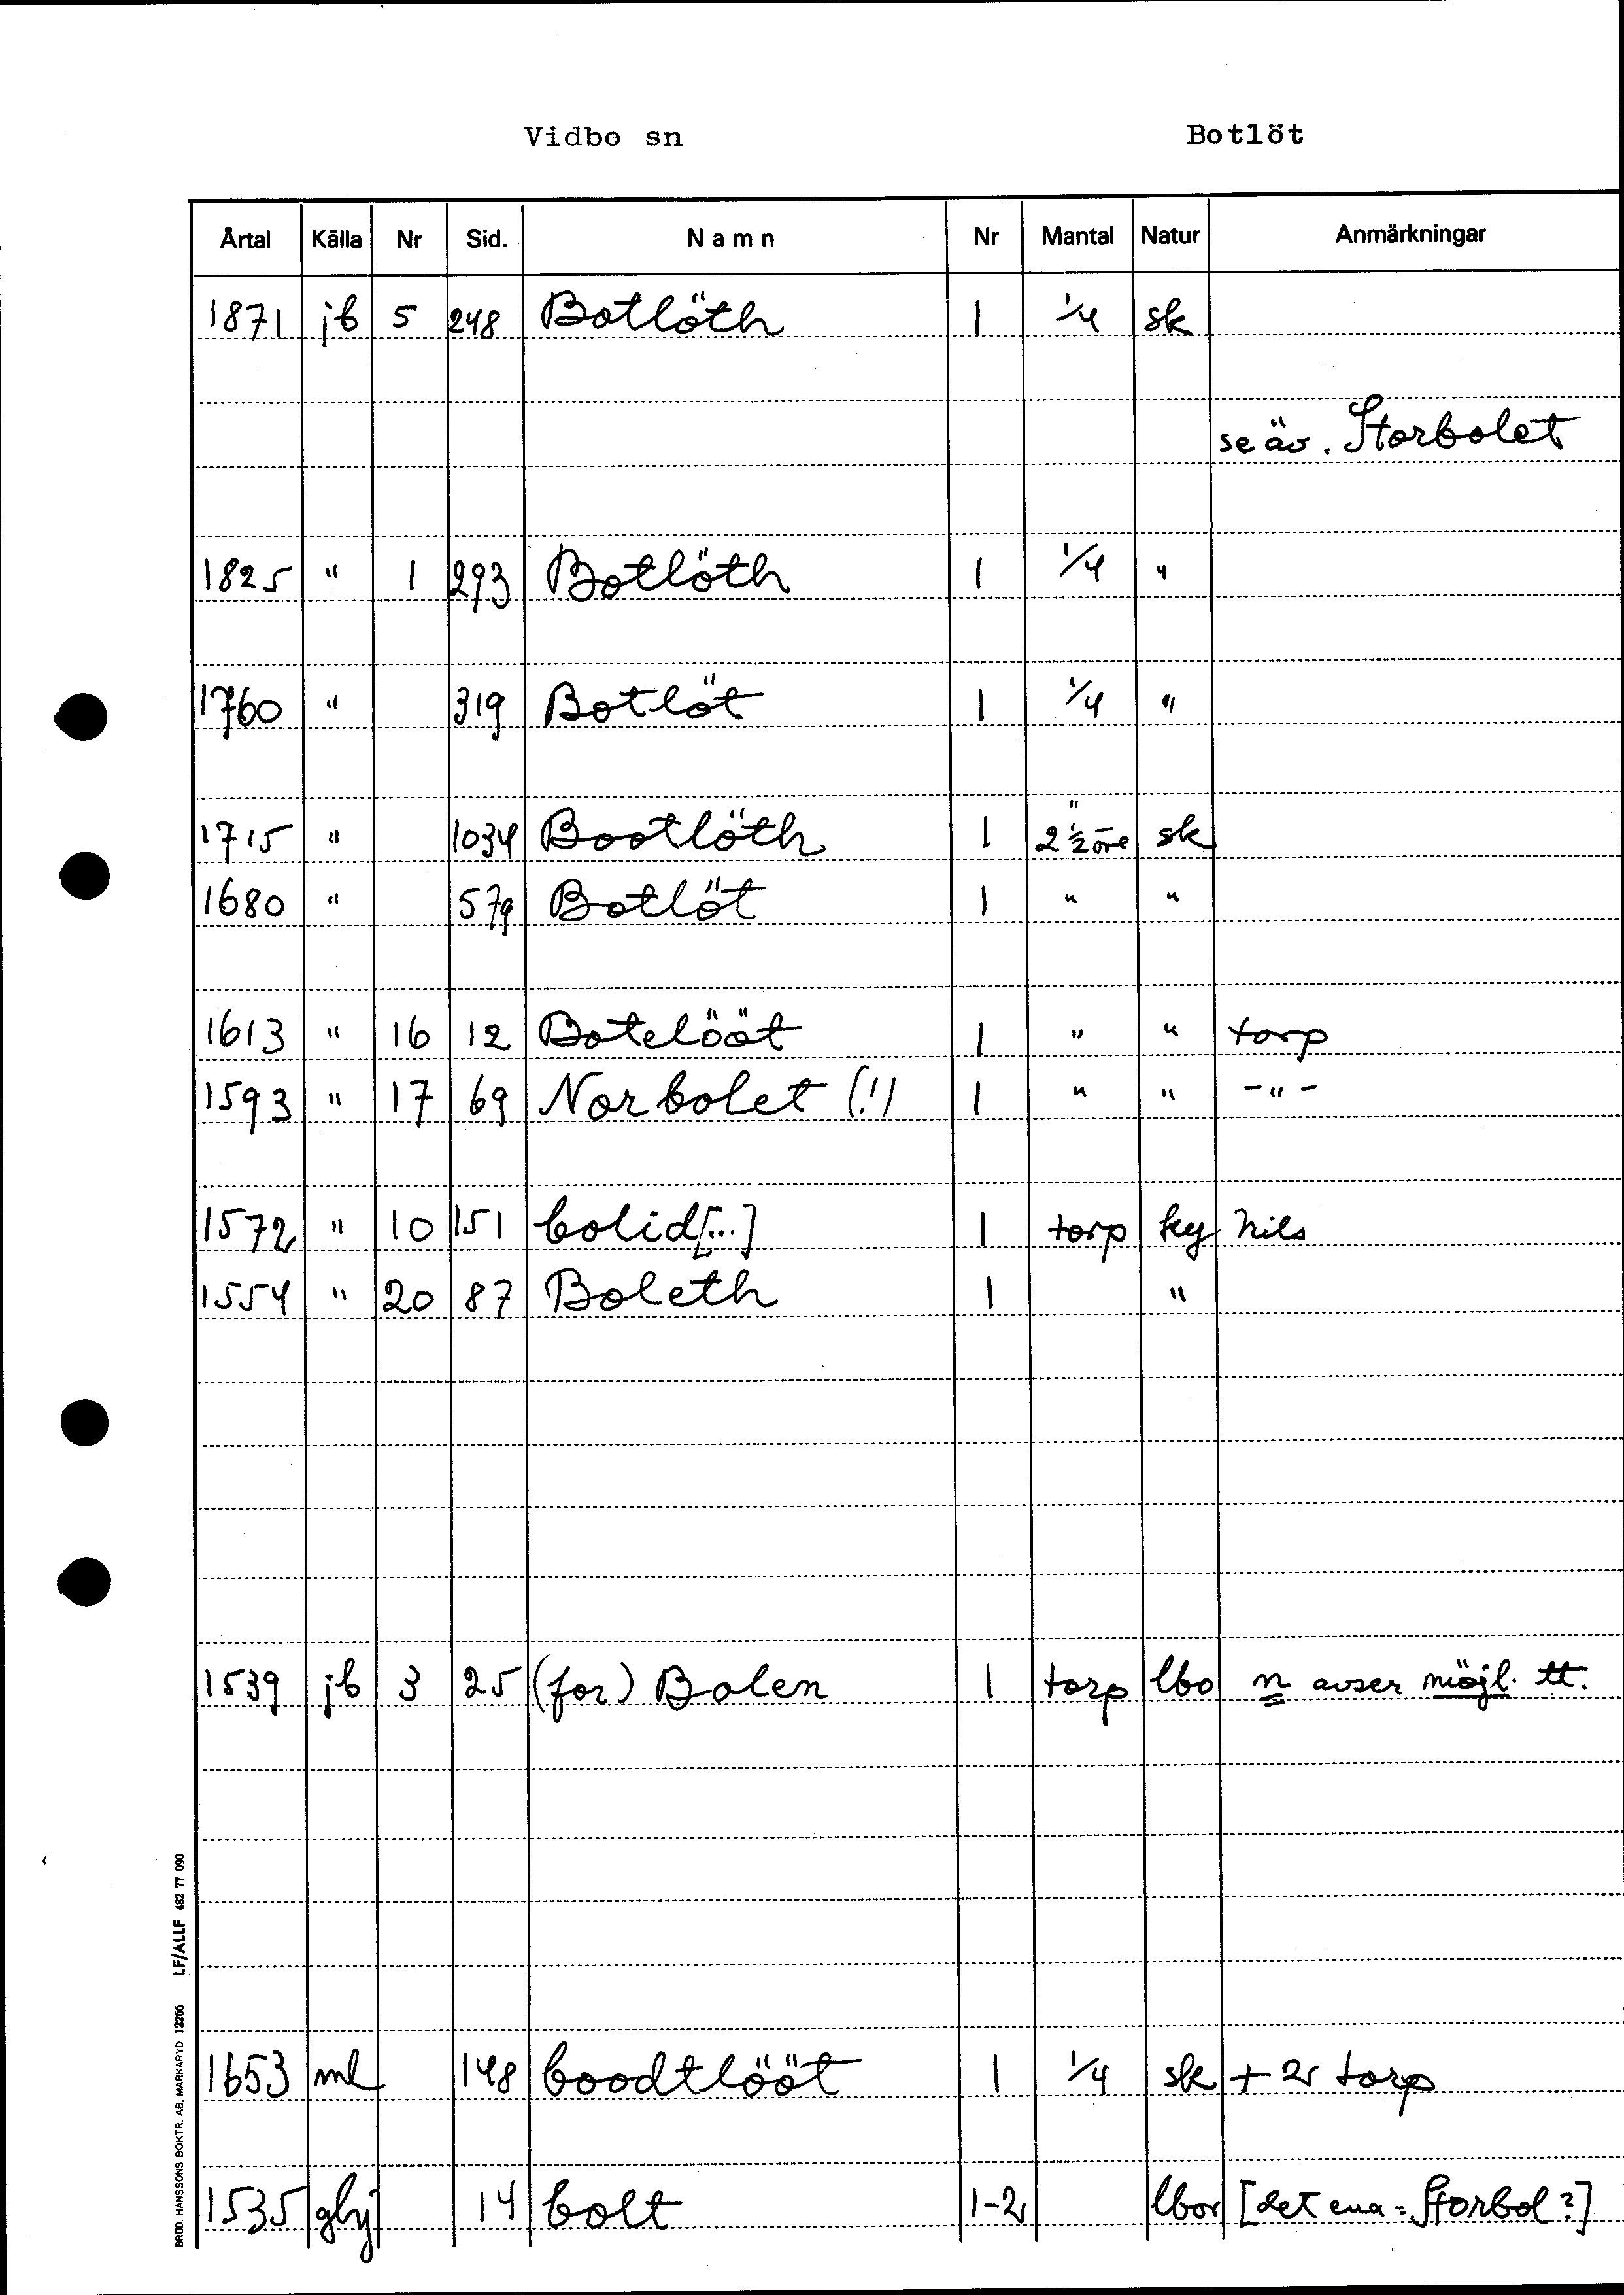 Vidbo sn Botlöt
Årtal Källa Nr Sid. Namn Nr Mantal Natur Anmärkningar
1871 jb 5 248 Botlöth 1 1/4 sk
se äv. Storbolet
1825 " 1 293 Botlöth 1 1/4 "
1760 " 319 Botlöt 1 1/4 "
1715 " 1034 Bootlöth 1 2 1/2 öre sk
1680 " 579 Botlöt 1 " "
1613 " 16 12 Botelööt 1 " " torp
1593 " 17 69 Norbolet (!) 1 " " -"-
1572 " 10 151 bolid[...] 1 torp ky Nils
1554 " 20 87 Boleth 1 "
1539 jb 3 25 (for) Bolen 1 torp lbo n avser möjl. tt.
1653 ml 148 boodtlööt 1 1/4 sk + 2 torp
1535 ghj 14 bolt 1-2 lbor [det ena = Storbol?]
BROD. HANSSONS BOKTR. AB, MARKARYD 12266 LF/ALLF 482 77 090